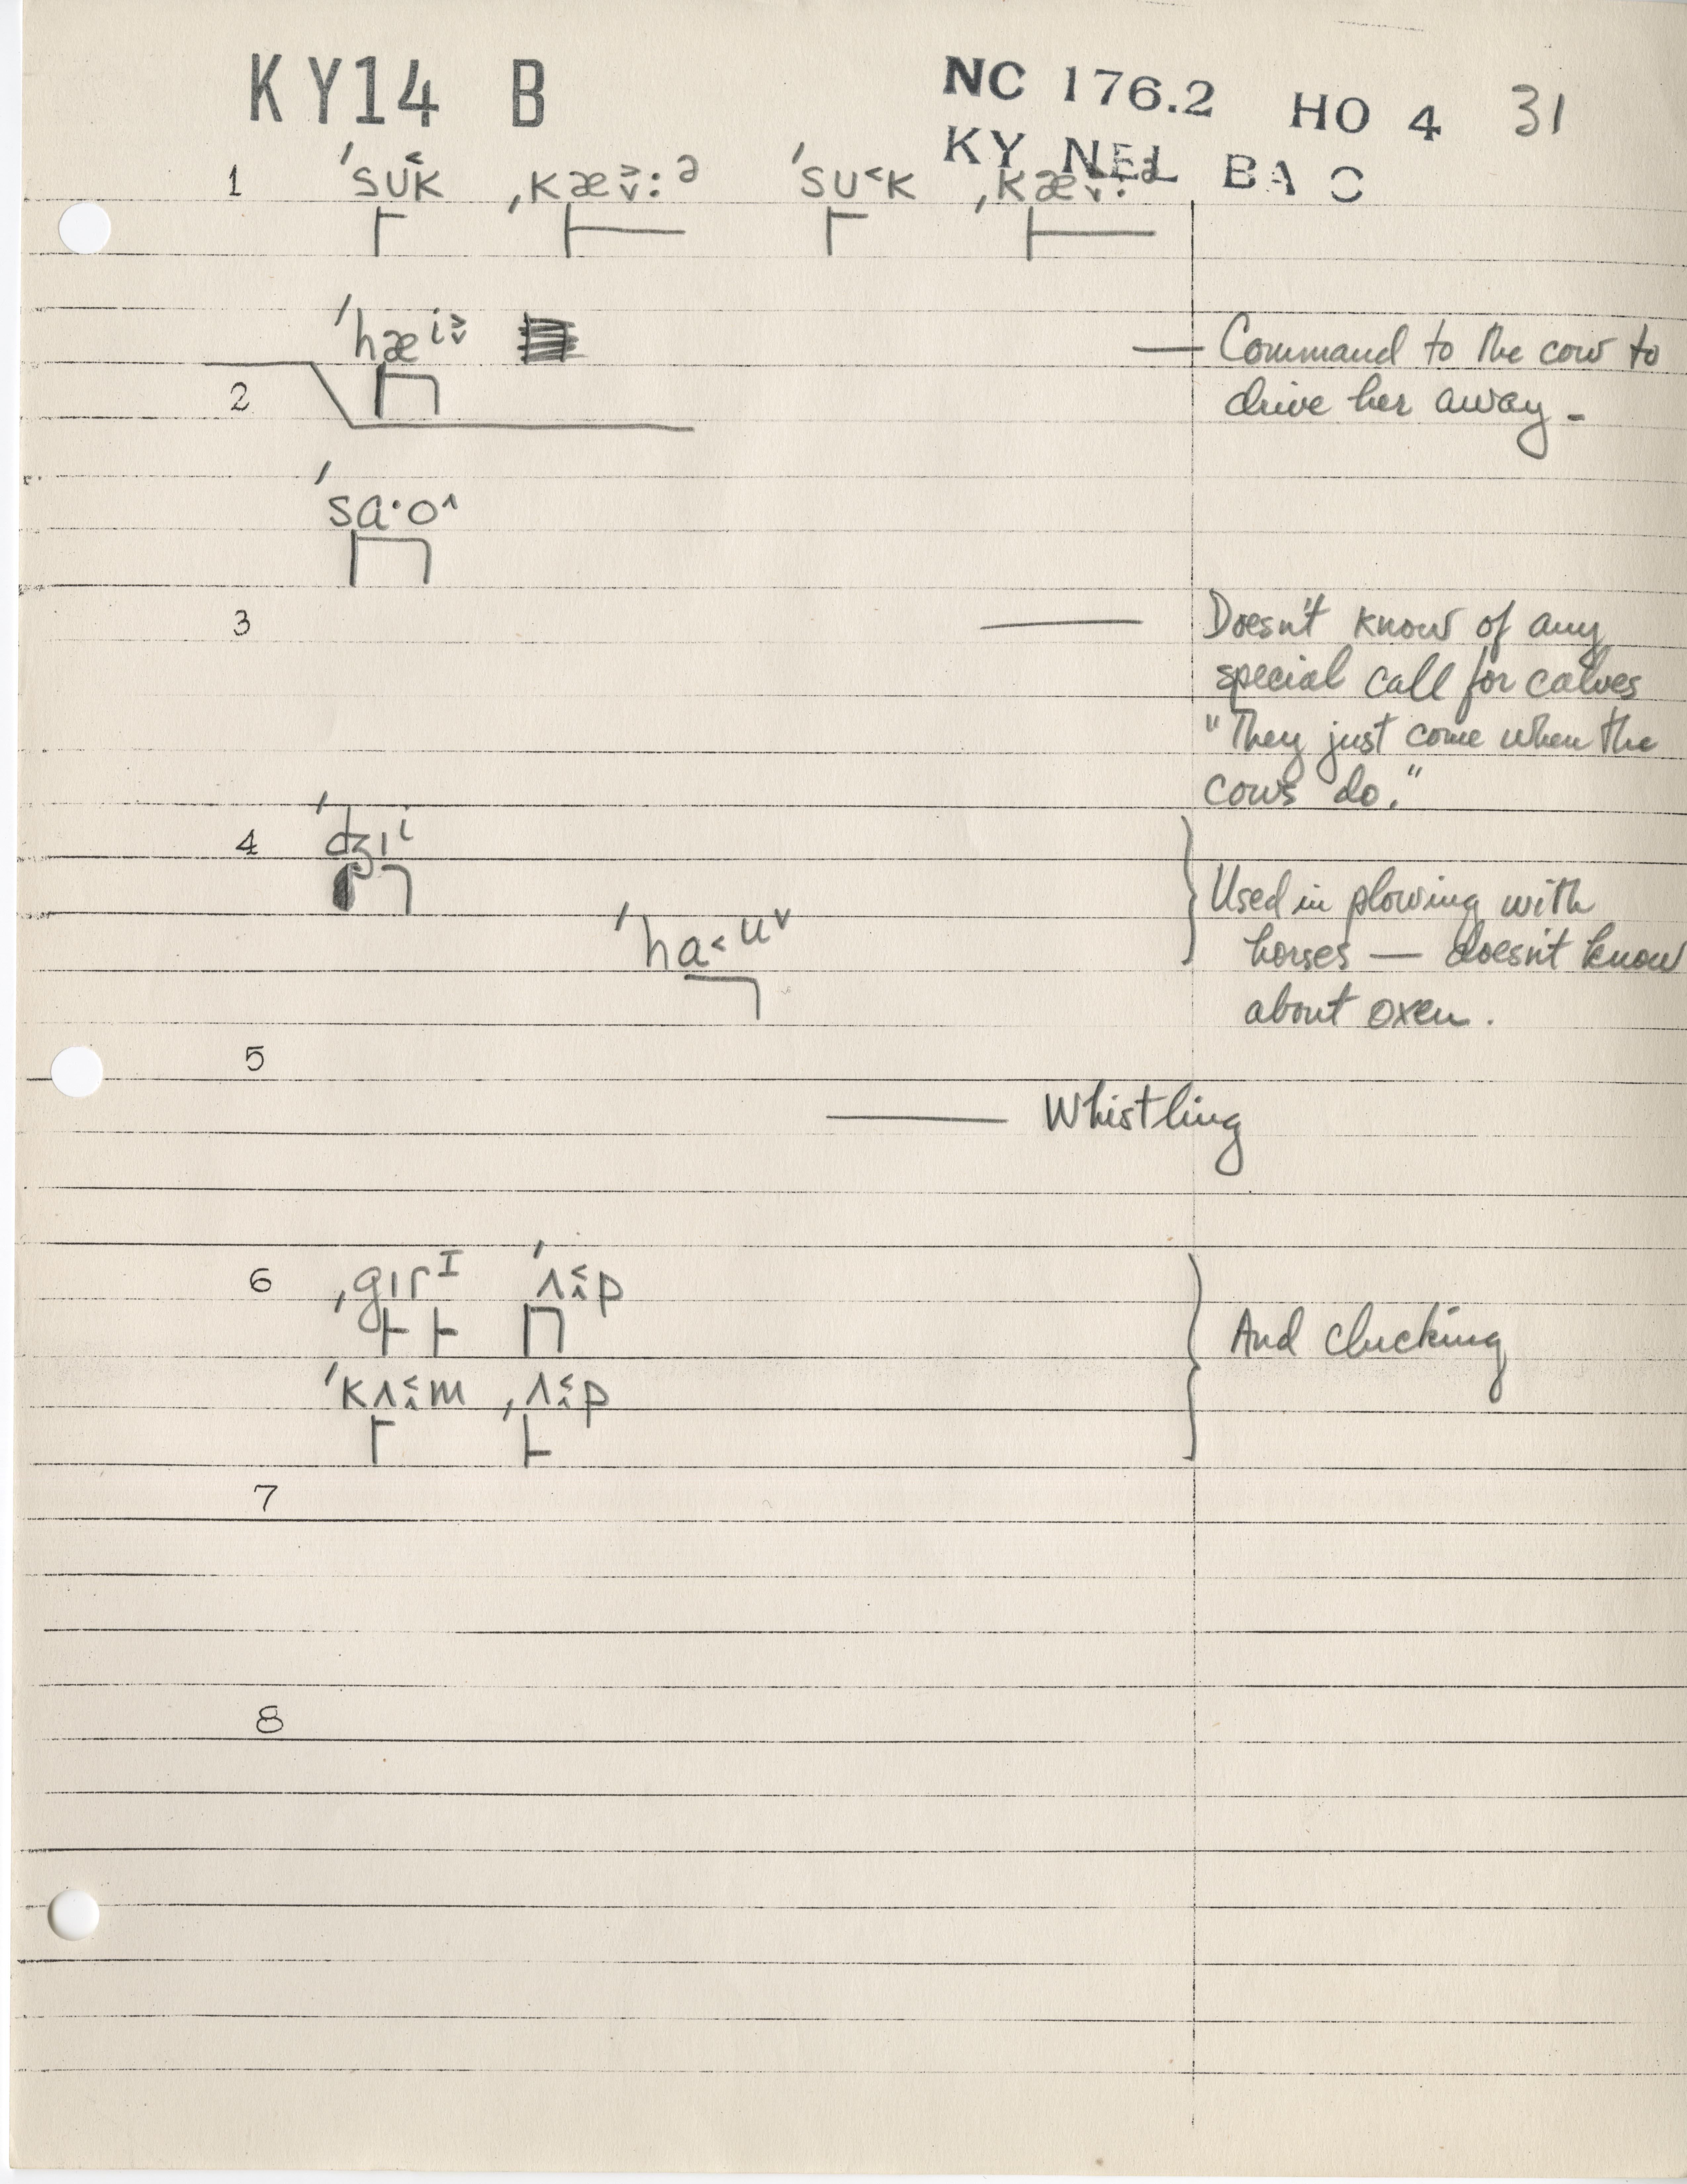 KY14 B
NC 176.2 HO 4 31
KY NEL BA C
1 ˈsu˂k ˌkæ˃˅:ᵊ ˈsu˂k ˌkæ˅:ᵊ
ˈhæⁱ˃˅
2
Command to the cow to
drive her away -
ˈsɑ·o^
3
Doesn't know of any
special call for calves
"They just come when the
cows do."
4 ˈdʒɪⁱ
ˈhɑ˂ᵘ˅
Used in plowing with
horses — doesn't know
about oxen.
5
Whistling
6 ˌgɪrᴵ ˈʌ˂^p
And clucking
ˈkʌ˂^m ˌʌ˂^p
7
8